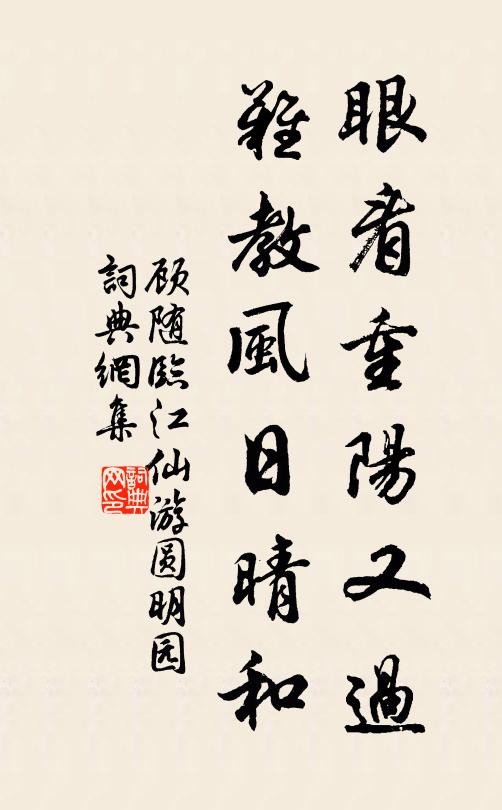 眼看重陽又過
難教風日晴和
顾随臨江仙游圆明园
詞典網集
詞典網印